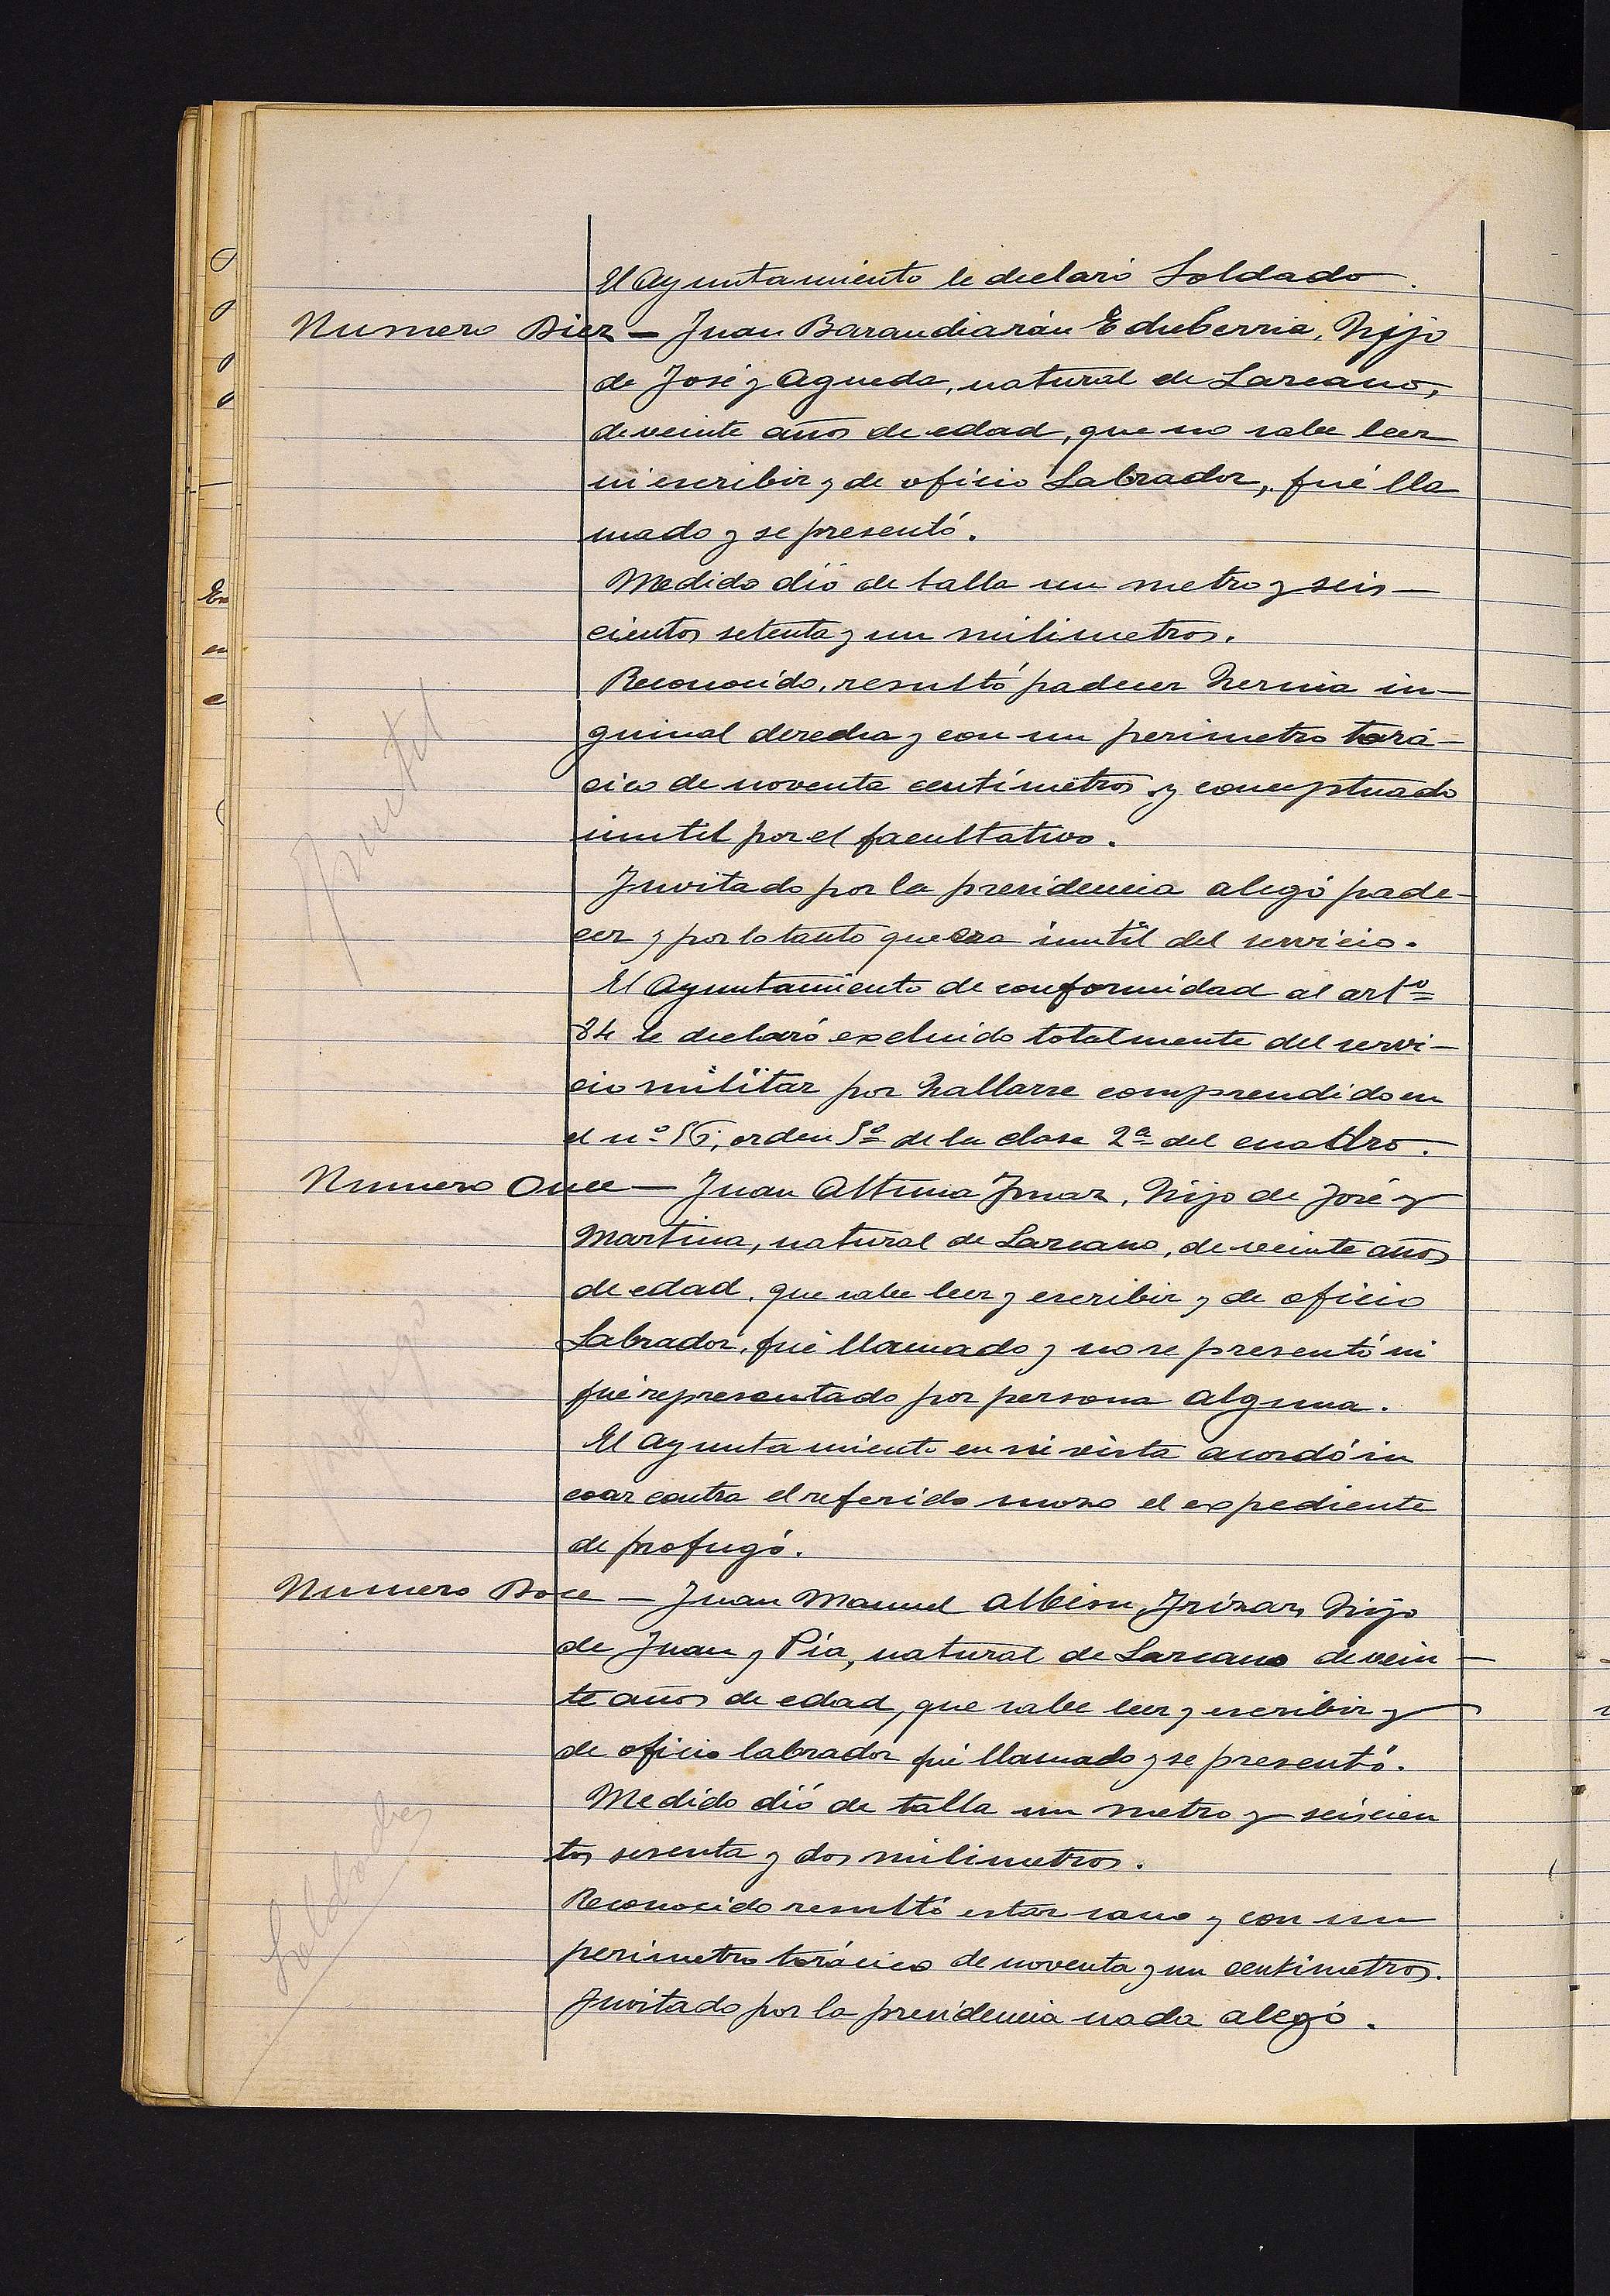 El Ayuntamiento le declaró Soldado.
Numero Diez — Juan Barandiarán Echeberria, hijo
de José y Agueda, natural de Lazcano,
de veinte años de edad, que no sabe leer
ni escribir y de oficio Labrador, fué lla
mado y se presentó.
Medido dió de talla un metro y seis—
cientos setenta y un milimetros.
Reconocido, resultó padecer hernia in—
guinal derecha y con un perimetro torá—
cico de noventa centímetros y conceptuado
inutil por el facultativo.
Inutil
Invitado por la presidencia alegó pade-
cer y por lo tanto que era inutil del servicio.
El Ayuntamiento de conformidad al artº
84 le declaró excluido totalmente del servi—
cio militar por hallarse comprendido en
el nº 56, orden 5º de la clase 2ª del cuadro.
Numero Once — Juan Altuna Imaz, hijo de José y
Martina, natural de Lazcano, de veinte años
de edad, que sabe leer y escribir y de oficio
Labrador, fué llamado y no se presentó ni
fué representado por persona alguna.
profugo
El Ayuntamiento en su vista acordó in
coar contra el referido mozo el expediente
de profugó.
Numero Doce — Juan Manuel Albisu Irizar, hijo
de Juan y Pia, natural de Lazcano de vein—
te años de edad, que sabe leer y escribir y
de oficio labrador fué llamado y se presentó.
Medido dió de talla un metro y seiscien
tos sesenta y dos milimetros.
Soldado
Reconocido resultó estar sano y con un
perimetro torácico de noventa y un centimetros.
Invitado por la presidencia nada alegó.